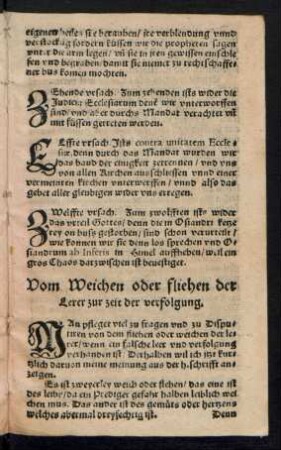 eigenen heile / sie berauben / ire verblendung vnnd
verstockūg fordern küssen wie die propheten sagen
vnter die arm legen / vñ sie in iren gewissen einschle
fen vnd begraben / damit sie niemer zu rechtschaffe-
ner bus komen mochten.
ZEhende vrsach. Zum zehenden ists wider die
Judicia Ecclesiarum denē wir vnterworffen
sind / vnd aber durchs Mandat verachtet vñ
mit füssen getretten werden.
ELffte vrsach. Ists contra unitatem Eccle-
siæ, denn durch das Mandat wurden wir
das band der einigkeit zertrennen / vnd vns
von allen Kirchen ausschliessen vnnd einer
vermeinten kirchen vnterwerffen / vnnd also das
gebet aller gleubigen wider vns erregen.
ZWelffte vrsach. Zum zwolfften ists wider
das vrteil Gottes / denn die im Osiandri ketze
rey on buss gestorben / sind schon verurteilt /
wie konnen wir sie denn los sprechen vnd O-
siandrum ab Inferis in Himel auffheben / weil ein
gros Chaos darzwischen ist beuestiget.
Vom Weichen oder fliehen der
Lerer zur zeit der verfolgung.
MAn pfleget viel zu fragen vnd zu Dispu-
tiren von dem fliehen oder weichen der le-
rer / wenn ein falsche leer vnd verfolgung
verhanden ist. Derhalben wil ich itz kurtz
tzlich daruon meine meinung aus der h. schrifft an-
zeigen.
Es ist zweyerley weich oder fliehen / das eine ist
des leibs / da ein Prediger gefahr halben leiblich wei
chen mus. Das ander ist des gemüts oder hertzens
welches abermal dreyfechtig ist. Denn